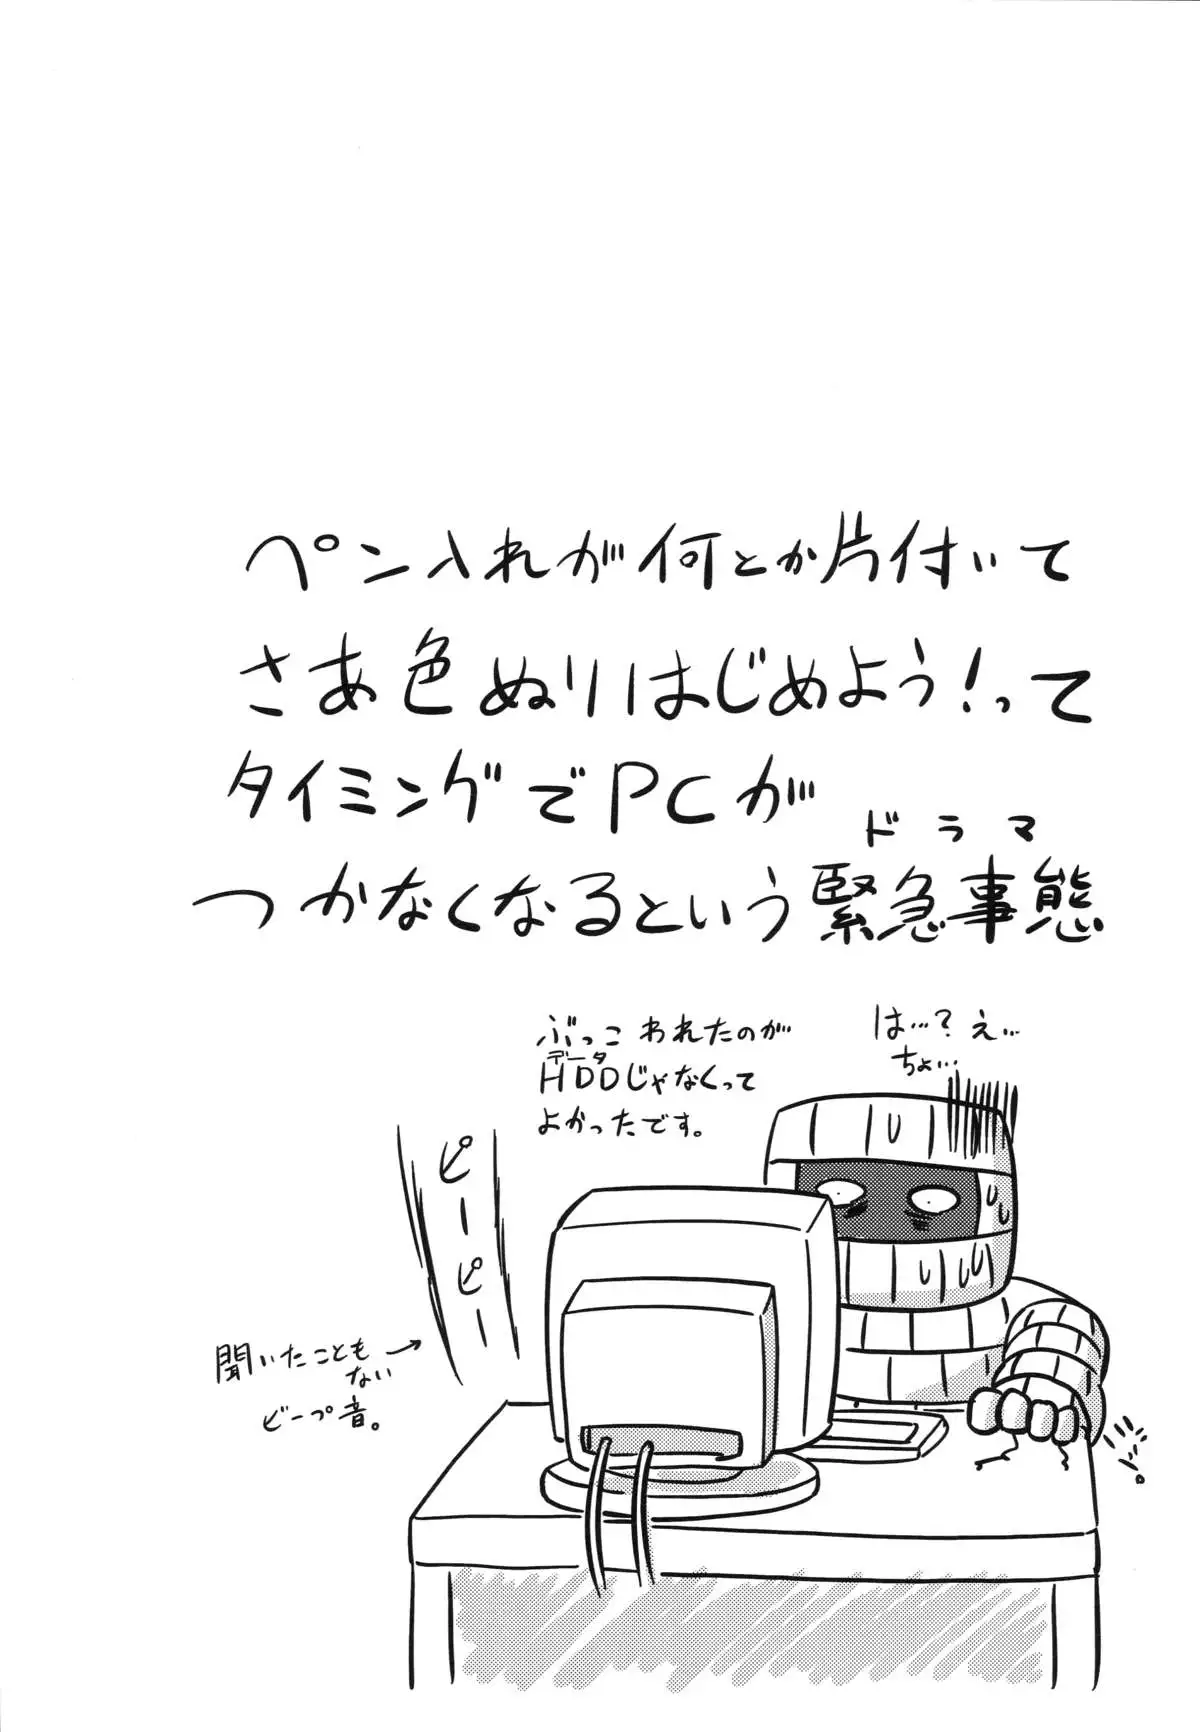 ペン入れが何とか片付いて
さあ色ぬりはじめよう!って
タイミングでPCが
ドラマ
つかなくなるという緊急事態
は…?え…
ちょ…
ぶっこわれたのが
データ
HDDじゃなくって
よかったです。
ピーピー
聞いたことも
ない
ビープ音。